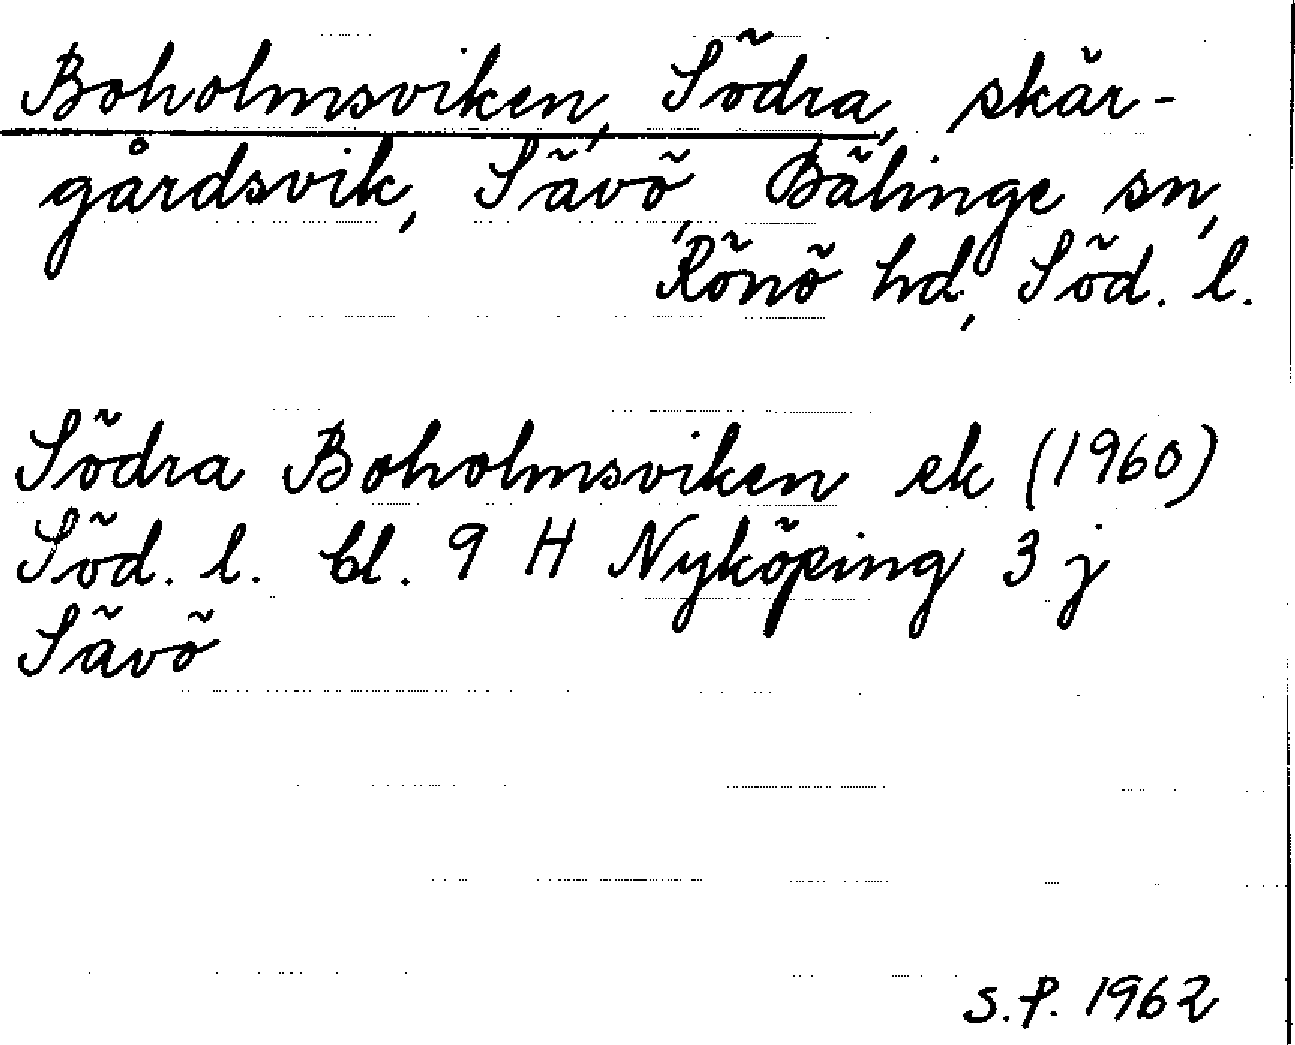 Boholmsviken, Södra, skär-
gårdsvik, Sävö, Bälinge sn,
Rönö hd, Söd. l.
Södra Boholmsviken ek (1960)
Söd. l. bl. 9 H Nyköping 3 j
Sävö
S.P. 1962